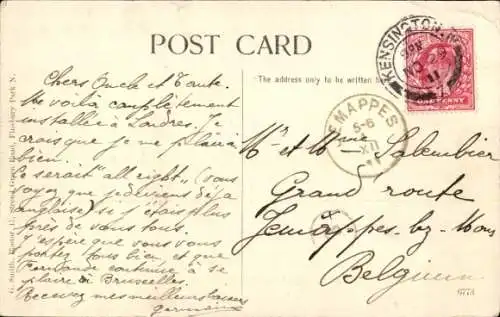 POST CARD
The address only to be written
KENSINGTON. W
11
ONE PENNY
JEMAPPES
5-6
XII
11
Chers Oncle et Tante.
Me voilà complètement
installée à Londres. J
crois que je me plairai
bien.
Ce serait "all right", (vous
voyez que je deviens déjà
anglaise) si j'étais plus
près de vous tous.
J'espère que vous vous
portez tous bien et que
Fernande continue à se
plaire à Bruxelles.
Recevez mes meilleurs baisers
Germaine
Mr et Me Lalembier
Grand'route
Jemappes-bez-Mons
Belgium
G. Smith, Photor, 17, Stroud Green Road, Finsbury Park N.